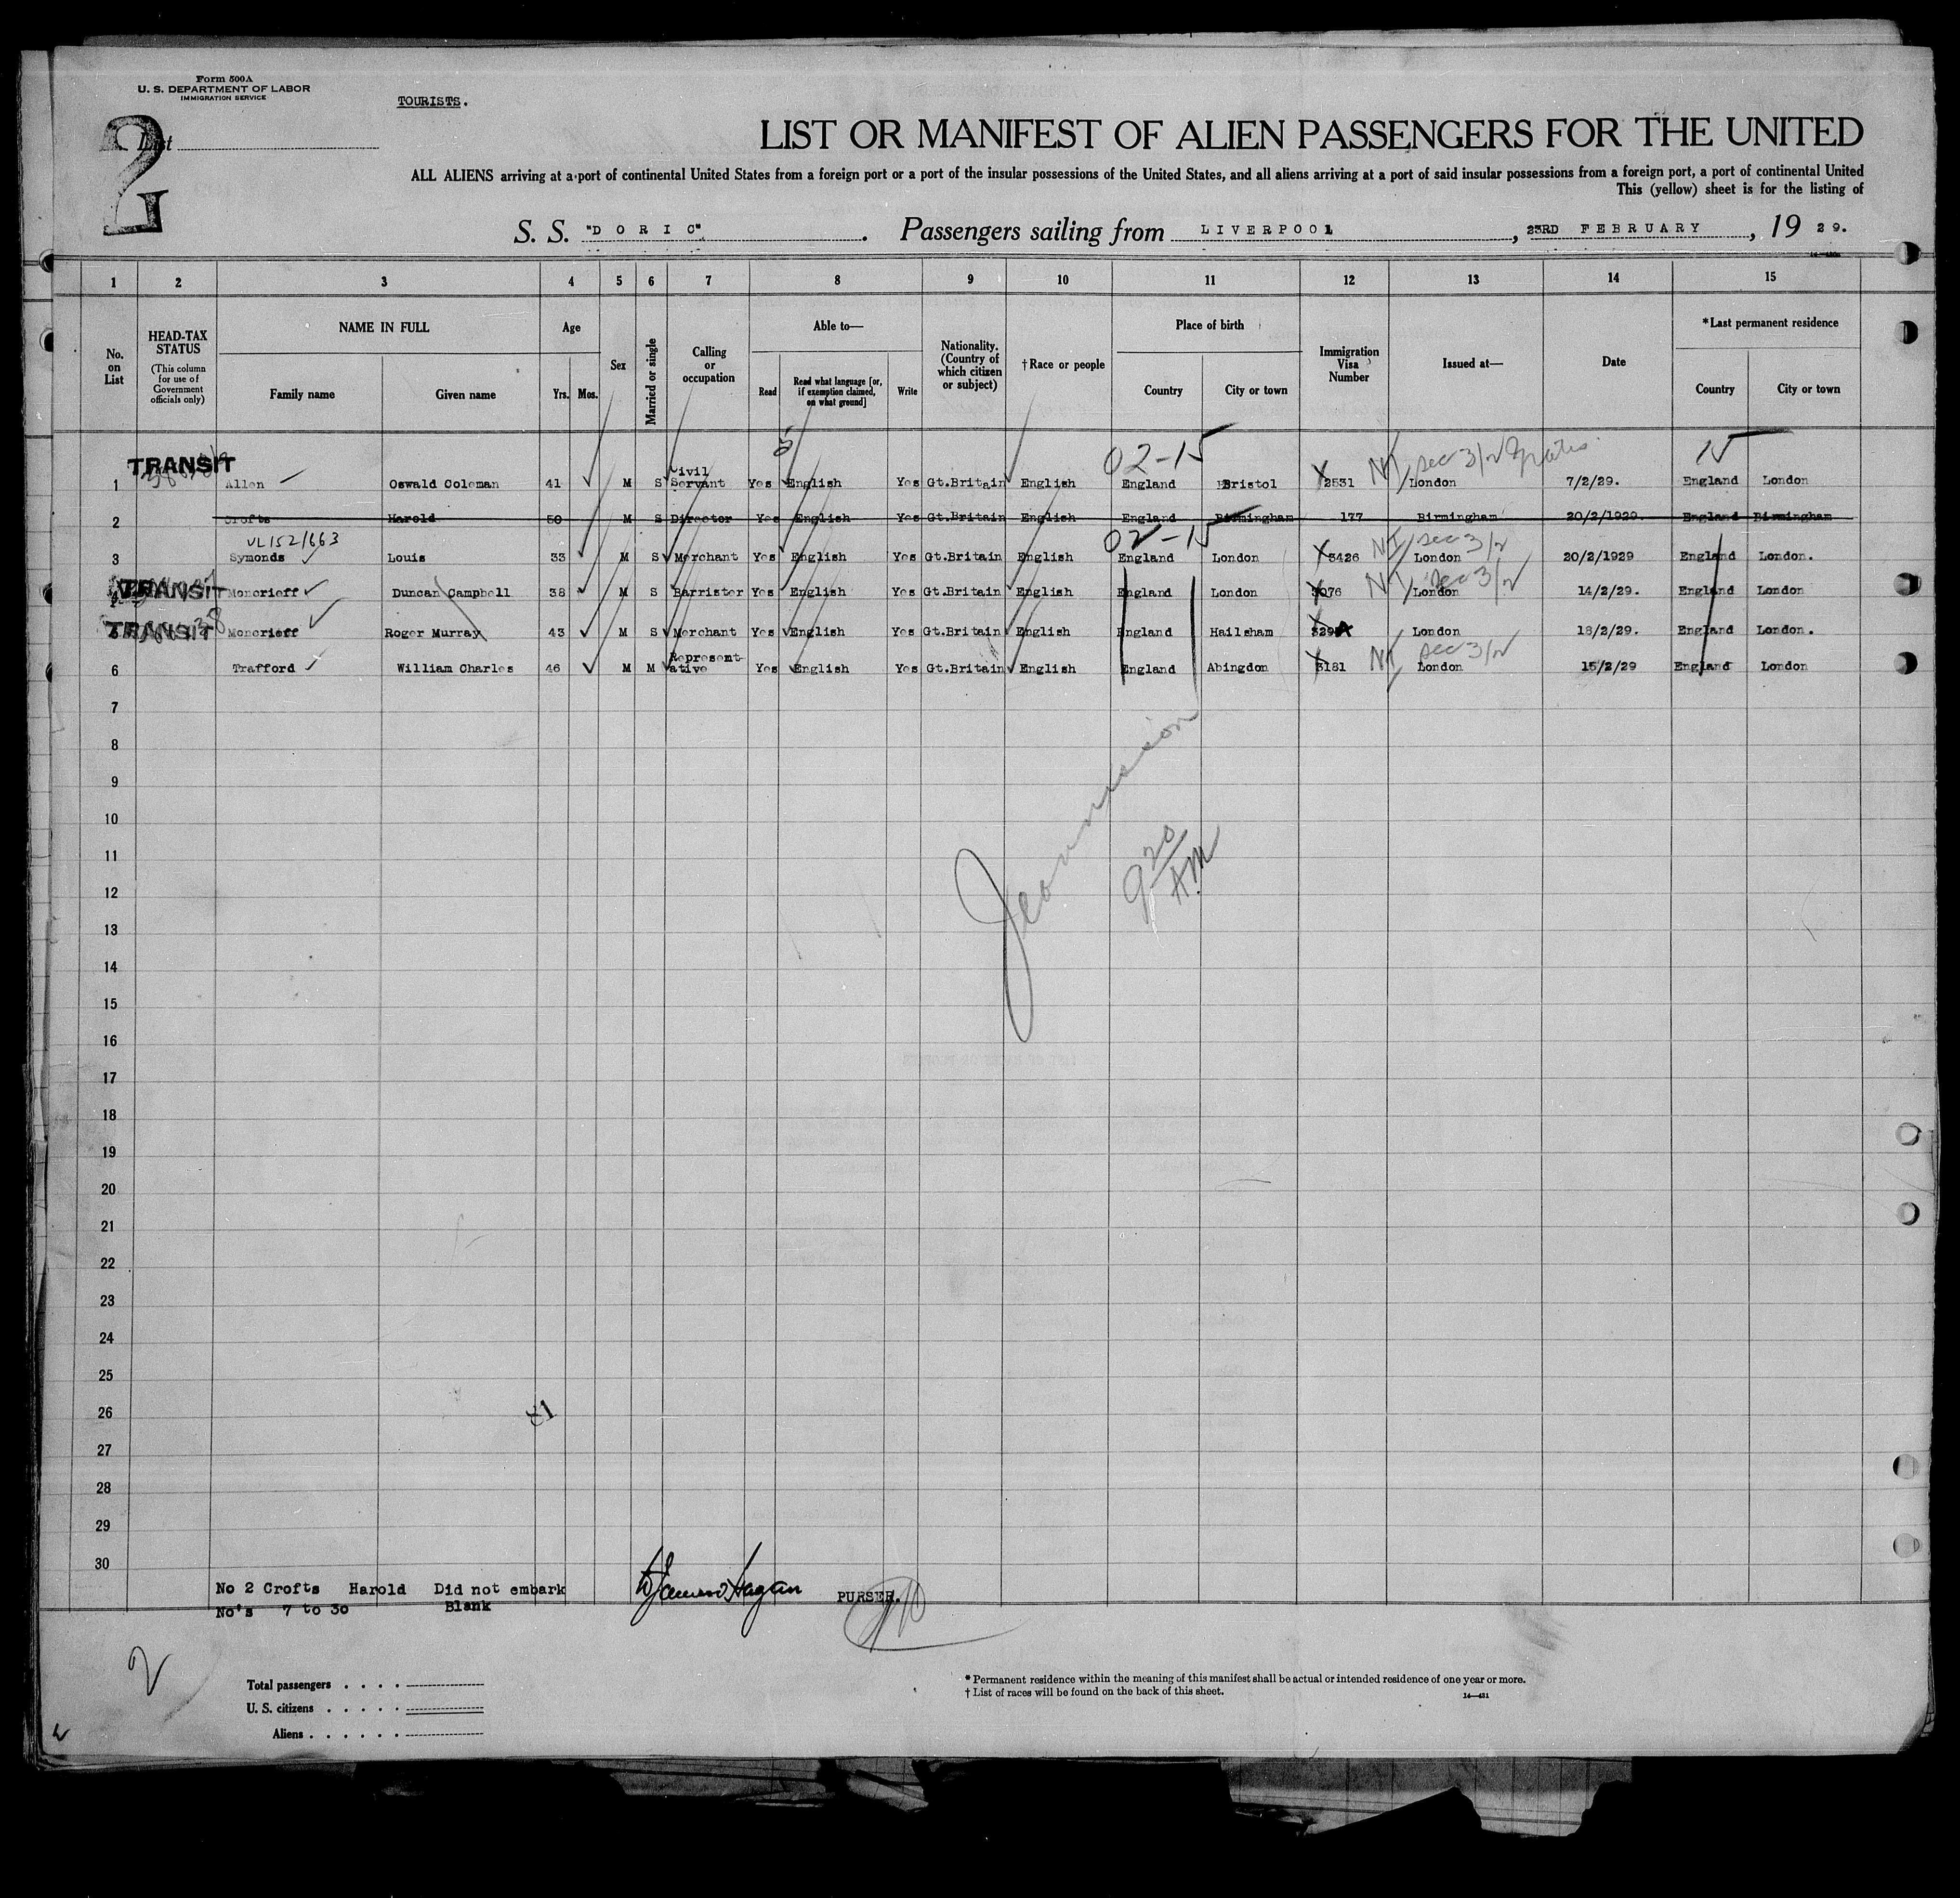 Form 500A
U. S. DEPARTMENT OF LABOR
IMMIGRATION SERVICE
TOURISTS.
2
List
LIST OR MANIFEST OF ALIEN PASSENGERS FOR THE UNITED
ALL ALIENS arriving at a port of continental United States from a foreign port or a port of the insular possessions of the United States, and all aliens arriving at a port of said insular possessions from a foreign port, a port of continental United
This (yellow) sheet is for the listing of
S. S. "DORIC". Passengers sailing from LIVERPOOL, 23RD FEBRUARY, 19 29.
1 2 3 4 5 6 7 8 9 10 11 12 13 14 15
No. on List
HEAD-TAX STATUS
(This column for use of Government officials only)
NAME IN FULL
Family name Given name
Age
Yrs. Mos.
Sex
Married or single
Calling or occupation
Able to—
Read
Read what language [or, if exemption claimed, on what ground]
Write
Nationality. (Country of which citizen or subject)
†Race or people
Place of birth
Country City or town
Immigration Visa Number
Issued at—
Date
*Last permanent residence
Country City or town
5 02-15 15
TRANSIT NI sec 3/2
1 Allen Oswald Coleman 41 M S Civil Servant Yes English Yes Gt.Britain English England Bristol 2531 London 7/2/29. England London
2 Crofts Harold 50 M S Director Yes English Yes Gt.Britain English England Birmingham 177 Birmingham 20/2/1929 England Birmingham
VL152/663 02-15 NI sec 3/2
3 Symonds Louis 33 M S Merchant Yes English Yes Gt.Britain English England London 3426 London 20/2/1929 England London.
TRANSIT NI sec 3/2
4 Moncrieff Duncan Campbell 38 M S Barrister Yes English Yes Gt.Britain English England London 3076 London 14/2/29. England London
TRANSIT
Moncrieff Roger Murray 43 M S Merchant Yes English Yes Gt.Britain English England Hailsham London 18/2/29. England London.
NI sec 3/2
6 Trafford William Charles 46 M M Representative Yes English Yes Gt.Britain English England Abingdon 3181 London 15/2/29 England London
7
8
9
10
11
12
13
14
15
16
17
18
19
20
21
22
23
24
25
26
27
28
29
30
9 20 AM
No 2 Crofts Harold Did not embark
No's 7 to 30 Blank
PURSER.
2
Total passengers
U. S. citizens
Aliens
* Permanent residence within the meaning of this manifest shall be actual or intended residence of one year or more.
† List of races will be found on the back of this sheet.
14—431